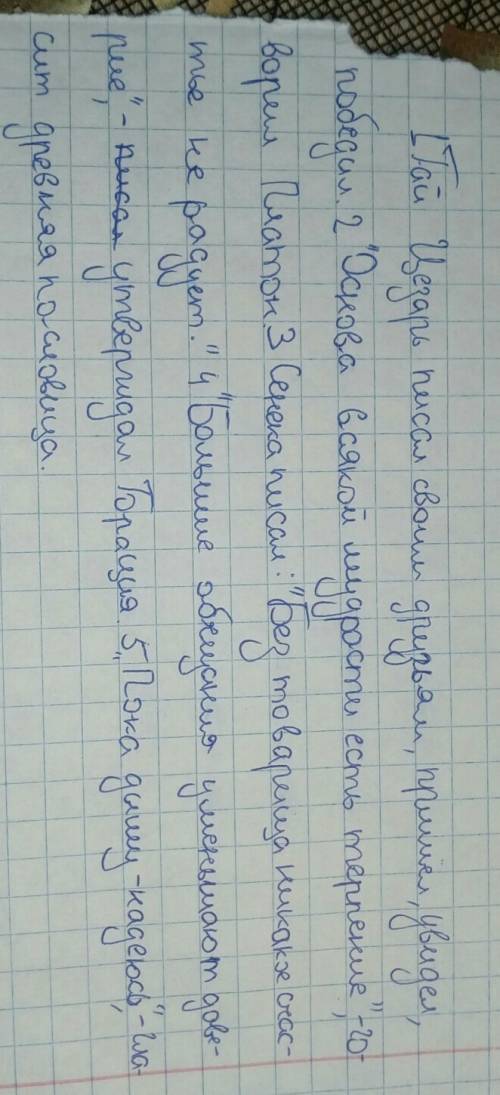 1 Гай Цезарь писал своим друзьям, пришел, увидел,
победил. 2 "Основа всякой мудрости есть терпение", - го-
ворил Платон. 3 Сенека писал: "Без товарища никакое счас-
тье не радует." 4 "Большие обещания уменьшают дове-
рие", - писал утверждал Гораций. 5 „Пока дышу - надеюсь", - гла-
сит древняя пословица.